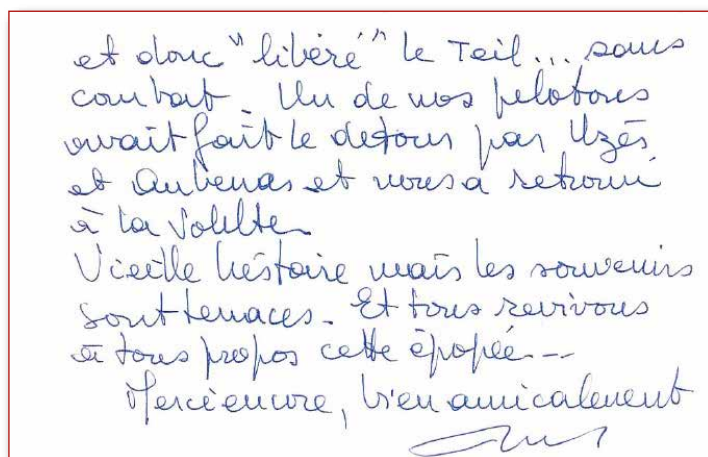 et donc "libéré" le Teil... sans
combat. Un de nos pelotons
avait fait le detour par Uzès
et Aubenas et nous a retrouvé
à la Voulte.
Vieille histoire mais les souvenirs
sont tenaces. Et tous revivons
à tous propos cette épopée...
Merci encore, bien amicalement